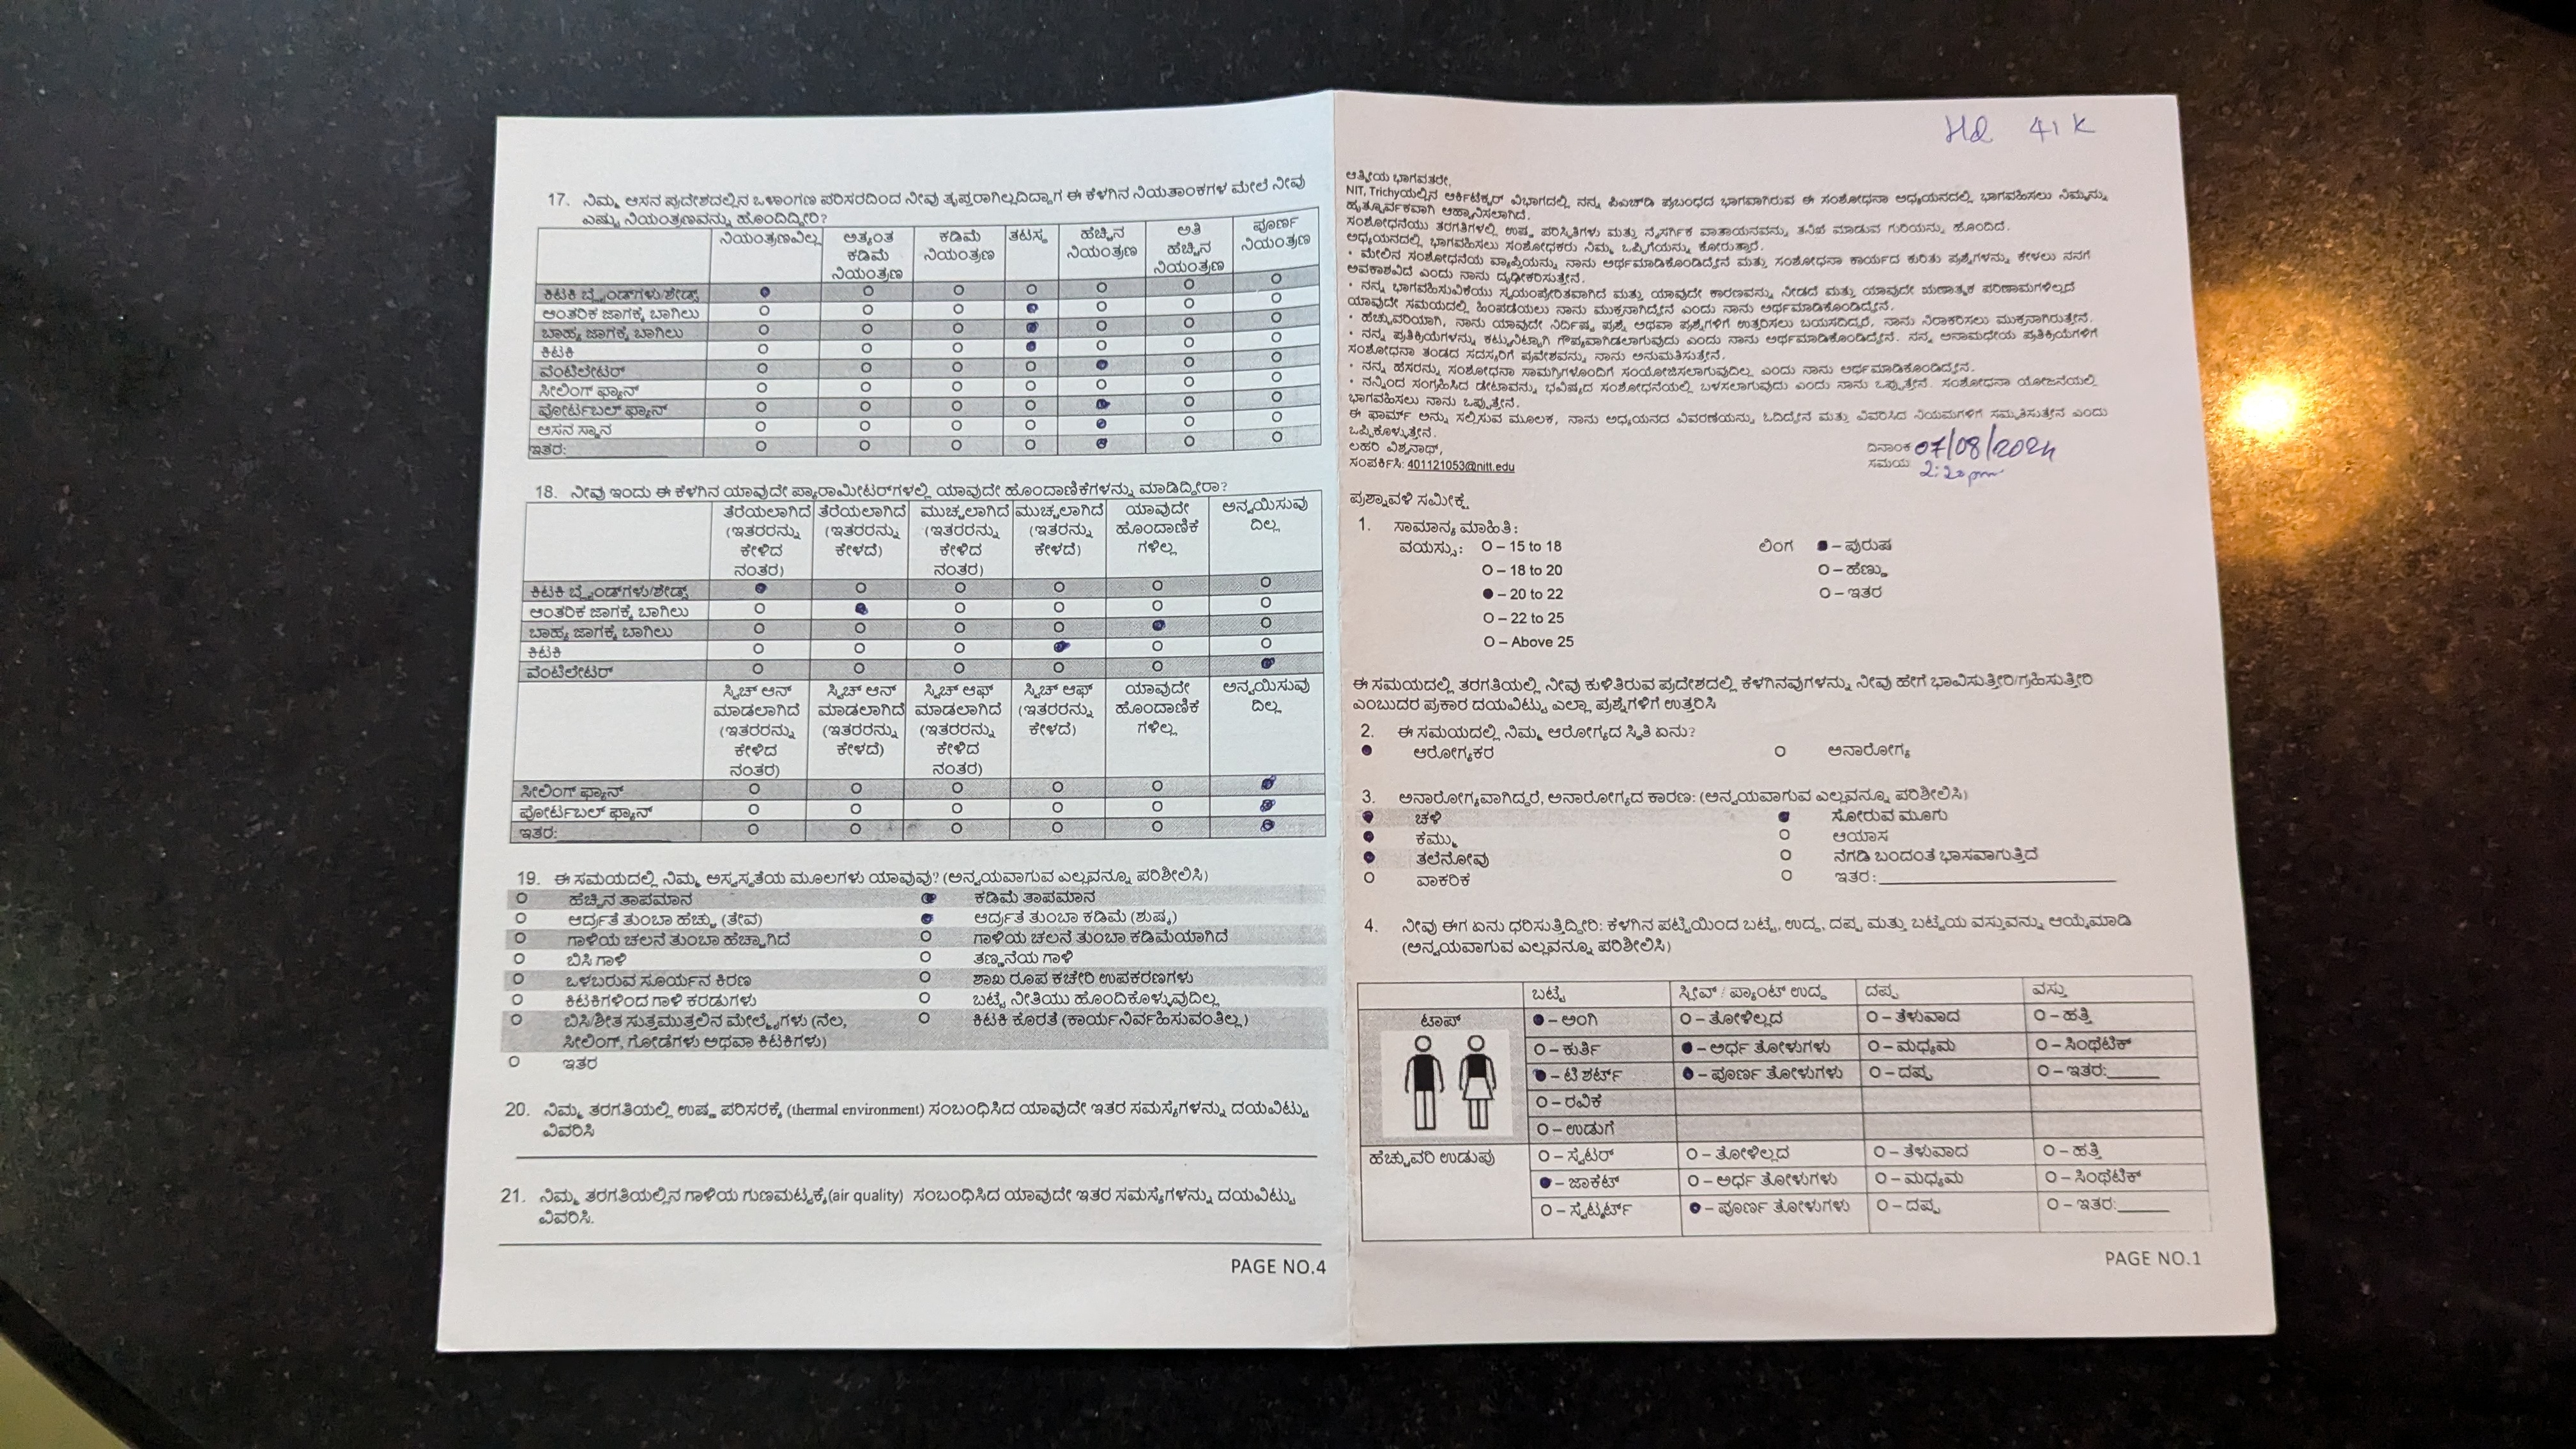 17. ನಿಮ್ಮ ಆಸನ ಪ್ರದೇಶದಲ್ಲಿನ ಒಳಾಂಗಣ ಪರಿಸರದಿಂದ ನೀವು ತೃಪ್ತರಾಗಿಲ್ಲದಿದ್ದಾಗ ಈ ಕೆಳಗಿನ ನಿಯತಾಂಕಗಳ ಮೇಲೆ ನೀವು
ಎಷ್ಟು ನಿಯಂತ್ರಣವನ್ನು ಹೊಂದಿದ್ದೀರಿ?
ನಿಯಂತ್ರಣವಿಲ್ಲ ಅತ್ಯಂತ ಕಡಿಮೆ ನಿಯಂತ್ರಣ ಕಡಿಮೆ ನಿಯಂತ್ರಣ ತಟಸ್ಥ ಹೆಚ್ಚಿನ ನಿಯಂತ್ರಣ ಅತಿ ಹೆಚ್ಚಿನ ನಿಯಂತ್ರಣ ಪೂರ್ಣ ನಿಯಂತ್ರಣ
ಕಿಟಕಿ ಬ್ಲೈಂಡ್‌ಗಳು/ಶೇಡ್ಸ್
ಆಂತರಿಕ ಜಾಗಕ್ಕೆ ಬಾಗಿಲು
ಬಾಹ್ಯ ಜಾಗಕ್ಕೆ ಬಾಗಿಲು
ಕಿಟಕಿ
ವೆಂಟಿಲೇಟರ್
ಸೀಲಿಂಗ್ ಫ್ಯಾನ್
ಪೋರ್ಟಬಲ್ ಫ್ಯಾನ್
ಆಸನ ಸ್ಥಾನ
ಇತರ:
18. ನೀವು ಇಂದು ಈ ಕೆಳಗಿನ ಯಾವುದೇ ಪ್ಯಾರಾಮೀಟರ್‌ಗಳಲ್ಲಿ ಯಾವುದೇ ಹೊಂದಾಣಿಕೆಗಳನ್ನು ಮಾಡಿದ್ದೀರಾ?
ತೆರೆಯಲಾಗಿದೆ (ಇತರರನ್ನು ಕೇಳಿದ ನಂತರ) ತೆರೆಯಲಾಗಿದೆ (ಇತರರನ್ನು ಕೇಳದೆ) ಮುಚ್ಚಲಾಗಿದೆ (ಇತರರನ್ನು ಕೇಳಿದ ನಂತರ) ಮುಚ್ಚಲಾಗಿದೆ (ಇತರರನ್ನು ಕೇಳದೆ) ಯಾವುದೇ ಹೊಂದಾಣಿಕೆ ಗಳಿಲ್ಲ ಅನ್ವಯಿಸುವು ದಿಲ್ಲ
ಕಿಟಕಿ ಬ್ಲೈಂಡ್‌ಗಳು/ಶೇಡ್ಸ್
ಆಂತರಿಕ ಜಾಗಕ್ಕೆ ಬಾಗಿಲು
ಬಾಹ್ಯ ಜಾಗಕ್ಕೆ ಬಾಗಿಲು
ಕಿಟಕಿ
ವೆಂಟಿಲೇಟರ್
ಸ್ವಿಚ್ ಆನ್ ಮಾಡಲಾಗಿದೆ (ಇತರರನ್ನು ಕೇಳಿದ ನಂತರ) ಸ್ವಿಚ್ ಆನ್ ಮಾಡಲಾಗಿದೆ (ಇತರರನ್ನು ಕೇಳದೆ) ಸ್ವಿಚ್ ಆಫ್ ಮಾಡಲಾಗಿದೆ (ಇತರರನ್ನು ಕೇಳಿದ ನಂತರ) ಸ್ವಿಚ್ ಆಫ್ (ಇತರರನ್ನು ಕೇಳದೆ) ಯಾವುದೇ ಹೊಂದಾಣಿಕೆ ಗಳಿಲ್ಲ ಅನ್ವಯಿಸುವು ದಿಲ್ಲ
ಸೀಲಿಂಗ್ ಫ್ಯಾನ್
ಪೋರ್ಟಬಲ್ ಫ್ಯಾನ್
ಇತರ:
19. ಈ ಸಮಯದಲ್ಲಿ ನಿಮ್ಮ ಅಸ್ವಸ್ಥತೆಯ ಮೂಲಗಳು ಯಾವುವು? (ಅನ್ವಯವಾಗುವ ಎಲ್ಲವನ್ನೂ ಪರಿಶೀಲಿಸಿ)
ಹೆಚ್ಚಿನ ತಾಪಮಾನ ಕಡಿಮೆ ತಾಪಮಾನ
ಆರ್ದ್ರತೆ ತುಂಬಾ ಹೆಚ್ಚು (ತೇವ) ಆರ್ದ್ರತೆ ತುಂಬಾ ಕಡಿಮೆ (ಶುಷ್ಕ)
ಗಾಳಿಯ ಚಲನೆ ತುಂಬಾ ಹೆಚ್ಚಾಗಿದೆ ಗಾಳಿಯ ಚಲನೆ ತುಂಬಾ ಕಡಿಮೆಯಾಗಿದೆ
ಬಿಸಿ ಗಾಳಿ ತಣ್ಣನೆಯ ಗಾಳಿ
ಒಳಬರುವ ಸೂರ್ಯನ ಕಿರಣ ಶಾಖ ರೂಪ ಕಚೇರಿ ಉಪಕರಣಗಳು
ಕಿಟಕಿಗಳಿಂದ ಗಾಳಿ ಕರಡುಗಳು ಬಟ್ಟೆ ನೀತಿಯು ಹೊಂದಿಕೊಳ್ಳುವುದಿಲ್ಲ
ಬಿಸಿ/ಶೀತ ಸುತ್ತಮುತ್ತಲಿನ ಮೇಲ್ಮೈಗಳು (ನೆಲ, ಕಿಟಕಿ ಕೊರತೆ (ಕಾರ್ಯನಿರ್ವಹಿಸುವಂತಿಲ್ಲ)
ಸೀಲಿಂಗ್, ಗೋಡೆಗಳು ಅಥವಾ ಕಿಟಕಿಗಳು)
ಇತರ
20. ನಿಮ್ಮ ತರಗತಿಯಲ್ಲಿ ಉಷ್ಣ ಪರಿಸರಕ್ಕೆ (thermal environment) ಸಂಬಂಧಿಸಿದ ಯಾವುದೇ ಇತರ ಸಮಸ್ಯೆಗಳನ್ನು ದಯವಿಟ್ಟು
ವಿವರಿಸಿ
21. ನಿಮ್ಮ ತರಗತಿಯಲ್ಲಿನ ಗಾಳಿಯ ಗುಣಮಟ್ಟಕ್ಕೆ(air quality) ಸಂಬಂಧಿಸಿದ ಯಾವುದೇ ಇತರ ಸಮಸ್ಯೆಗಳನ್ನು ದಯವಿಟ್ಟು
ವಿವರಿಸಿ.
PAGE NO.4
41 K
ಆತ್ಮೀಯ ಭಾಗವತರೇ,
NIT, Trichyಯಲ್ಲಿನ ಆರ್ಕಿಟೆಕ್ಚರ್ ವಿಭಾಗದಲ್ಲಿ ನನ್ನ ಪಿಎಚ್‌ಡಿ ಪ್ರಬಂಧದ ಭಾಗವಾಗಿರುವ ಈ ಸಂಶೋಧನಾ ಅಧ್ಯಯನದಲ್ಲಿ ಭಾಗವಹಿಸಲು ನಿಮ್ಮನ್ನು
ಹೃತ್ಪೂರ್ವಕವಾಗಿ ಆಹ್ವಾನಿಸಲಾಗಿದೆ.
ಸಂಶೋಧನೆಯು ತರಗತಿಗಳಲ್ಲಿ ಉಷ್ಣ ಪರಿಸ್ಥಿತಿಗಳು ಮತ್ತು ನೈಸರ್ಗಿಕ ವಾತಾಯನವನ್ನು ತನಿಖೆ ಮಾಡುವ ಗುರಿಯನ್ನು ಹೊಂದಿದೆ.
ಅಧ್ಯಯನದಲ್ಲಿ ಭಾಗವಹಿಸಲು ಸಂಶೋಧಕರು ನಿಮ್ಮ ಒಪ್ಪಿಗೆಯನ್ನು ಕೋರುತ್ತಾರೆ.
• ಮೇಲಿನ ಸಂಶೋಧನೆಯ ವ್ಯಾಪ್ತಿಯನ್ನು ನಾನು ಅರ್ಥಮಾಡಿಕೊಂಡಿದ್ದೇನೆ ಮತ್ತು ಸಂಶೋಧನಾ ಕಾರ್ಯದ ಕುರಿತು ಪ್ರಶ್ನೆಗಳನ್ನು ಕೇಳಲು ನನಗೆ
ಅವಕಾಶವಿದೆ ಎಂದು ನಾನು ದೃಢೀಕರಿಸುತ್ತೇನೆ.
• ನನ್ನ ಭಾಗವಹಿಸುವಿಕೆಯು ಸ್ವಯಂಪ್ರೇರಿತವಾಗಿದೆ ಮತ್ತು ಯಾವುದೇ ಕಾರಣವನ್ನು ನೀಡದೆ ಮತ್ತು ಯಾವುದೇ ಋಣಾತ್ಮಕ ಪರಿಣಾಮಗಳಿಲ್ಲದೆ
ಯಾವುದೇ ಸಮಯದಲ್ಲಿ ಹಿಂಪಡೆಯಲು ನಾನು ಮುಕ್ತನಾಗಿದ್ದೇನೆ ಎಂದು ನಾನು ಅರ್ಥಮಾಡಿಕೊಂಡಿದ್ದೇನೆ.
• ಹೆಚ್ಚುವರಿಯಾಗಿ, ನಾನು ಯಾವುದೇ ನಿರ್ದಿಷ್ಟ ಪ್ರಶ್ನೆ ಅಥವಾ ಪ್ರಶ್ನೆಗಳಿಗೆ ಉತ್ತರಿಸಲು ಬಯಸದಿದ್ದರೆ, ನಾನು ನಿರಾಕರಿಸಲು ಮುಕ್ತನಾಗಿರುತ್ತೇನೆ.
• ನನ್ನ ಪ್ರತಿಕ್ರಿಯೆಗಳನ್ನು ಕಟ್ಟುನಿಟ್ಟಾಗಿ ಗೌಪ್ಯವಾಗಿಡಲಾಗುವುದು ಎಂದು ನಾನು ಅರ್ಥಮಾಡಿಕೊಂಡಿದ್ದೇನೆ. ನನ್ನ ಅನಾಮಧೇಯ ಪ್ರತಿಕ್ರಿಯೆಗಳಿಗೆ
ಸಂಶೋಧನಾ ತಂಡದ ಸದಸ್ಯರಿಗೆ ಪ್ರವೇಶವನ್ನು ನಾನು ಅನುಮತಿಸುತ್ತೇನೆ.
• ನನ್ನ ಹೆಸರನ್ನು ಸಂಶೋಧನಾ ಸಾಮಗ್ರಿಗಳೊಂದಿಗೆ ಸಂಯೋಜಿಸಲಾಗುವುದಿಲ್ಲ ಎಂದು ನಾನು ಅರ್ಥಮಾಡಿಕೊಂಡಿದ್ದೇನೆ.
• ನನ್ನಿಂದ ಸಂಗ್ರಹಿಸಿದ ಡೇಟಾವನ್ನು ಭವಿಷ್ಯದ ಸಂಶೋಧನೆಯಲ್ಲಿ ಬಳಸಲಾಗುವುದು ಎಂದು ನಾನು ಒಪ್ಪುತ್ತೇನೆ. ಸಂಶೋಧನಾ ಯೋಜನೆಯಲ್ಲಿ
ಭಾಗವಹಿಸಲು ನಾನು ಒಪ್ಪುತ್ತೇನೆ.
ಈ ಫಾರ್ಮ್ ಅನ್ನು ಸಲ್ಲಿಸುವ ಮೂಲಕ, ನಾನು ಅಧ್ಯಯನದ ವಿವರಣೆಯನ್ನು ಓದಿದ್ದೇನೆ ಮತ್ತು ವಿವರಿಸಿದ ನಿಯಮಗಳಿಗೆ ಸಮ್ಮತಿಸುತ್ತೇನೆ ಎಂದು
ಒಪ್ಪಿಕೊಳ್ಳುತ್ತೇನೆ.
ಲಹರಿ ವಿಶ್ವನಾಥ್,
ಸಂಪರ್ಕಿಸಿ: 401121053@nitt.edu
ದಿನಾಂಕ 07/08/2024
ಸಮಯ 2:20pm
ಪ್ರಶ್ನಾವಳಿ ಸಮೀಕ್ಷೆ
1. ಸಾಮಾನ್ಯ ಮಾಹಿತಿ:
ವಯಸ್ಸು: O – 15 to 18 ಲಿಂಗ – ಪುರುಷ
O – 18 to 20 O – ಹೆಣ್ಣು
– 20 to 22 O – ಇತರ
O – 22 to 25
O – Above 25
ಈ ಸಮಯದಲ್ಲಿ ತರಗತಿಯಲ್ಲಿ ನೀವು ಕುಳಿತಿರುವ ಪ್ರದೇಶದಲ್ಲಿ ಕೆಳಗಿನವುಗಳನ್ನು ನೀವು ಹೇಗೆ ಭಾವಿಸುತ್ತೀರಿ/ಗ್ರಹಿಸುತ್ತೀರಿ
ಎಂಬುದರ ಪ್ರಕಾರ ದಯವಿಟ್ಟು ಎಲ್ಲಾ ಪ್ರಶ್ನೆಗಳಿಗೆ ಉತ್ತರಿಸಿ
2. ಈ ಸಮಯದಲ್ಲಿ ನಿಮ್ಮ ಆರೋಗ್ಯದ ಸ್ಥಿತಿ ಏನು?
ಆರೋಗ್ಯಕರ ಅನಾರೋಗ್ಯ
3. ಅನಾರೋಗ್ಯವಾಗಿದ್ದರೆ, ಅನಾರೋಗ್ಯದ ಕಾರಣ: (ಅನ್ವಯವಾಗುವ ಎಲ್ಲವನ್ನೂ ಪರಿಶೀಲಿಸಿ)
ಚಳಿ ಸೋರುವ ಮೂಗು
ಕೆಮ್ಮು ಆಯಾಸ
ತಲೆನೋವು ನೆಗಡಿ ಬಂದಂತೆ ಭಾಸವಾಗುತ್ತಿದೆ
ವಾಕರಿಕೆ ಇತರ:
4. ನೀವು ಈಗ ಏನು ಧರಿಸುತ್ತಿದ್ದೀರಿ: ಕೆಳಗಿನ ಪಟ್ಟಿಯಿಂದ ಬಟ್ಟೆ, ಉದ್ದ, ದಪ್ಪ ಮತ್ತು ಬಟ್ಟೆಯ ವಸ್ತುವನ್ನು ಆಯ್ಕೆಮಾಡಿ
(ಅನ್ವಯವಾಗುವ ಎಲ್ಲವನ್ನೂ ಪರಿಶೀಲಿಸಿ)
ಬಟ್ಟೆ ಸ್ಲೀವ್ / ಪ್ಯಾಂಟ್ ಉದ್ದ ದಪ್ಪ ವಸ್ತು
ಟಾಪ್ – ಅಂಗಿ O – ತೋಳಿಲ್ಲದ O – ತೆಳುವಾದ O – ಹತ್ತಿ
O – ಕುರ್ತಿ – ಅರ್ಧ ತೋಳುಗಳು O – ಮಧ್ಯಮ O – ಸಿಂಥೆಟಿಕ್
– ಟಿ ಶರ್ಟ್ – ಪೂರ್ಣ ತೋಳುಗಳು O – ದಪ್ಪ O – ಇತರ:
O – ರವಿಕೆ
O – ಉಡುಗೆ
ಹೆಚ್ಚುವರಿ ಉಡುಪು O – ಸ್ವೆಟರ್ O – ತೋಳಿಲ್ಲದ O – ತೆಳುವಾದ O – ಹತ್ತಿ
– ಜಾಕೆಟ್ O – ಅರ್ಧ ತೋಳುಗಳು O – ಮಧ್ಯಮ O – ಸಿಂಥೆಟಿಕ್
O – ಸ್ವೆಟ್ಶರ್ಟ್ – ಪೂರ್ಣ ತೋಳುಗಳು O – ದಪ್ಪ O – ಇತರ:
PAGE NO.1